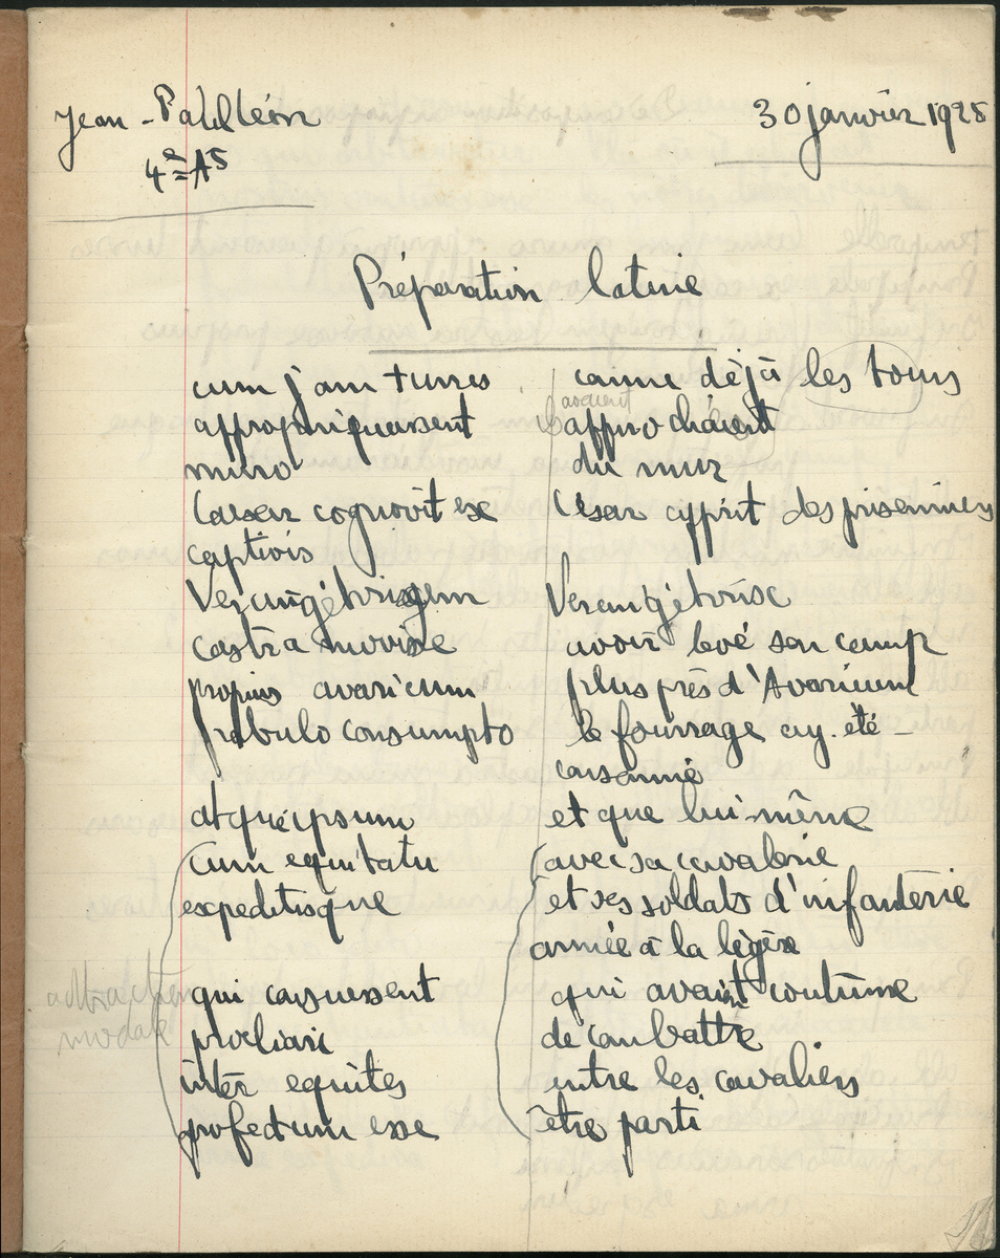 Jean-Pahlléon
30 janvier 1925
4e A5
Préparation latine
cum jam turres comme déjà les tours
avaient
appropinquassent approchaient
muro du mur
Caesar cognovit ex César apprit des prisonniers
captivis
Vercingétorigem Vercingétorix
castra movisse avoir levé son camp
propius avaricum plus près d'Avaricum
pabulo consumpto le fourrage ay. été
consommé
atque ipsum et que lui-même
cum equitatu avec sa cavalerie
expeditisque et ses soldats d'infanterie
armée à la légère
qui consuessent qui avaient coutume
proeliari de combattre
inter equites entre les cavaliers
profectum esse être parti